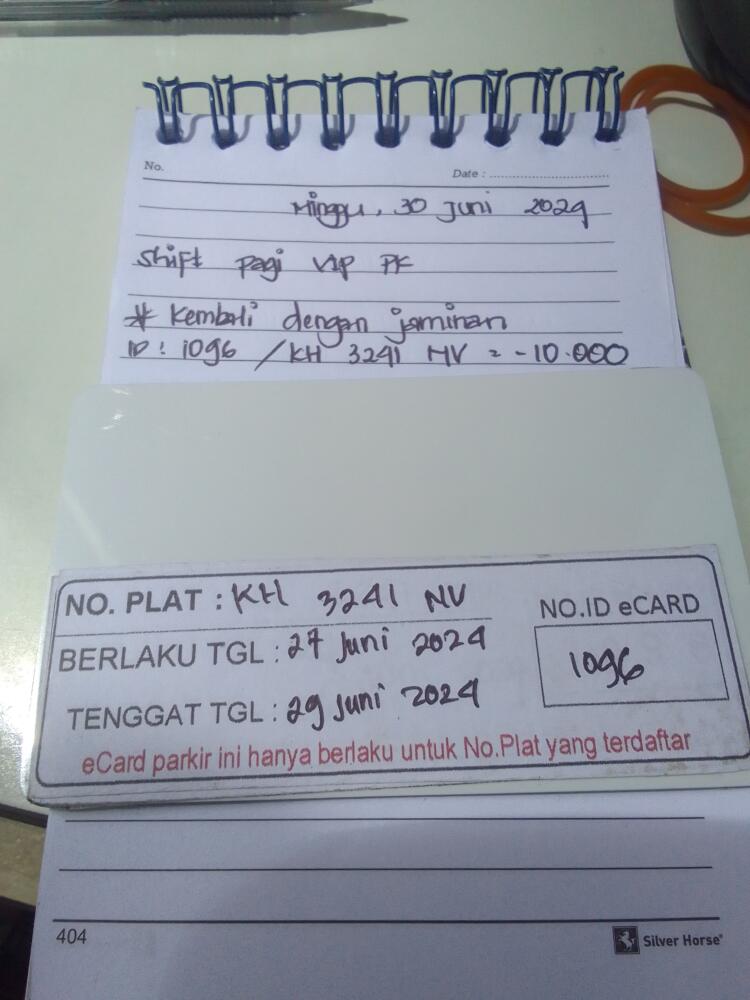 No.
Date :
Minggu, 30 Juni 2024
Shift pagi VIP PK
* Kembali dengan jaminan
ID : 1096 / KH 3241 NV = -10.000
NO. PLAT : KH 3241 NV
BERLAKU TGL : 27 Juni 2024
TENGGAT TGL : 29 Juni 2024
NO.ID eCARD
1096
eCard parkir ini hanya berlaku untuk No.Plat yang terdaftar
404
Silver Horse